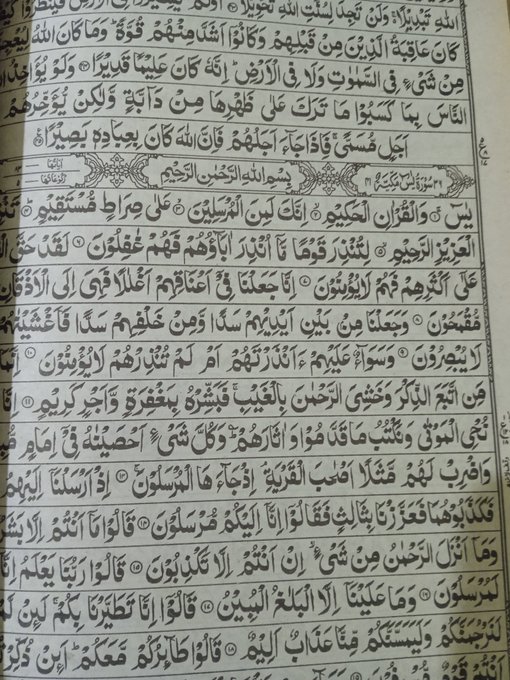 اللّٰهِ تَبْدِيْلًا۬ وَلَنْ تَجِدَ لِسُنَّتِ اللّٰهِ تَحْوِيْلًا ۴۳
كَانَ عَاقِبَةُ الَّذِيْنَ مِنْ قَبْلِهِمْ وَكَانُوْۤا اَشَدَّ مِنْهُمْ قُوَّةً ؕ وَمَا كَانَ اللّٰهُ
مِنْ شَيْءٍ فِي السَّمٰوٰتِ وَلَا فِي الْاَرْضِ ؕ اِنَّهٗ كَانَ عَلِيْمًا قَدِيْرًا ۴۴ وَلَوْ يُؤَاخِذُ
النَّاسَ بِمَا كَسَبُوْا مَا تَرَكَ عَلٰى ظَهْرِهَا مِنْ دَآبَّةٍ وَّلٰكِنْ يُّؤَخِّرُهُمْ
اَجَلٍ مُّسَمًّى ۚ فَاِذَا جَآءَ اَجَلُهُمْ فَاِنَّ اللّٰهَ كَانَ بِعِبَادِهٖ بَصِيْرًا ۴۵
۳۶ سُوْرَةُ يٰسٓ مَكِّيَّةٌ ۴۱ بِسْمِ اللّٰهِ الرَّحْمٰنِ الرَّحِيْمِ
يٰسٓ ۱ وَالْقُرْاٰنِ الْحَكِيْمِ ۲ اِنَّكَ لَمِنَ الْمُرْسَلِيْنَ ۳ عَلٰى صِرَاطٍ مُّسْتَقِيْمٍ ۴
الْعَزِيْزِ الرَّحِيْمِ ۵ لِتُنْذِرَ قَوْمًا مَّاۤ اُنْذِرَ اٰبَآؤُهُمْ فَهُمْ غٰفِلُوْنَ ۶ لَقَدْ حَقَّ
عَلٰۤى اَكْثَرِهِمْ فَهُمْ لَا يُؤْمِنُوْنَ ۷ اِنَّا جَعَلْنَا فِيْۤ اَعْنَاقِهِمْ اَغْلٰلًا فَهِيَ اِلَى الْاَذْقَانِ
مُّقْمَحُوْنَ ۸ وَجَعَلْنَا مِنْۢ بَيْنِ اَيْدِيْهِمْ سَدًّا وَّمِنْ خَلْفِهِمْ سَدًّا فَاَغْشَيْنٰهُمْ
لَا يُبْصِرُوْنَ ۹ وَسَوَآءٌ عَلَيْهِمْ ءَاَنْذَرْتَهُمْ اَمْ لَمْ تُنْذِرْهُمْ لَا يُؤْمِنُوْنَ ۱۰ اِنَّمَا
مَنِ اتَّبَعَ الذِّكْرَ وَخَشِيَ الرَّحْمٰنَ بِالْغَيْبِ ۚ فَبَشِّرْهُ بِمَغْفِرَةٍ وَّاَجْرٍ كَرِيْمٍ ۱۱ اِنَّا
نُحْيِ الْمَوْتٰى وَنَكْتُبُ مَا قَدَّمُوْا وَاٰثَارَهُمْ ؕ وَكُلَّ شَيْءٍ اَحْصَيْنٰهُ فِيْۤ اِمَامٍ
وَاضْرِبْ لَهُمْ مَّثَلًا اَصْحٰبَ الْقَرْيَةِ ۘ اِذْ جَآءَهَا الْمُرْسَلُوْنَ ۱۳ اِذْ اَرْسَلْنَاۤ اِلَيْهِمُ
فَكَذَّبُوْهُمَا فَعَزَّزْنَا بِثَالِثٍ فَقَالُوْۤا اِنَّاۤ اِلَيْكُمْ مُّرْسَلُوْنَ ۱۴ قَالُوْا مَاۤ اَنْتُمْ اِلَّا بَشَرٌ
وَمَاۤ اَنْزَلَ الرَّحْمٰنُ مِنْ شَيْءٍ ۙ اِنْ اَنْتُمْ اِلَّا تَكْذِبُوْنَ ۱۵ قَالُوْا رَبُّنَا يَعْلَمُ اِنَّاۤ
لَمُرْسَلُوْنَ ۱۶ وَمَا عَلَيْنَاۤ اِلَّا الْبَلٰغُ الْمُبِيْنُ ۱۷ قَالُوْۤا اِنَّا تَطَيَّرْنَا بِكُمْ ۚ لَئِنْ لَّمْ
لَنَرْجُمَنَّكُمْ وَلَيَمَسَّنَّكُمْ مِّنَّا عَذَابٌ اَلِيْمٌ ۱۸ قَالُوْا طَآئِرُكُمْ مَّعَكُمْ ؕ اَئِنْ ذُكِّرْتُمْ